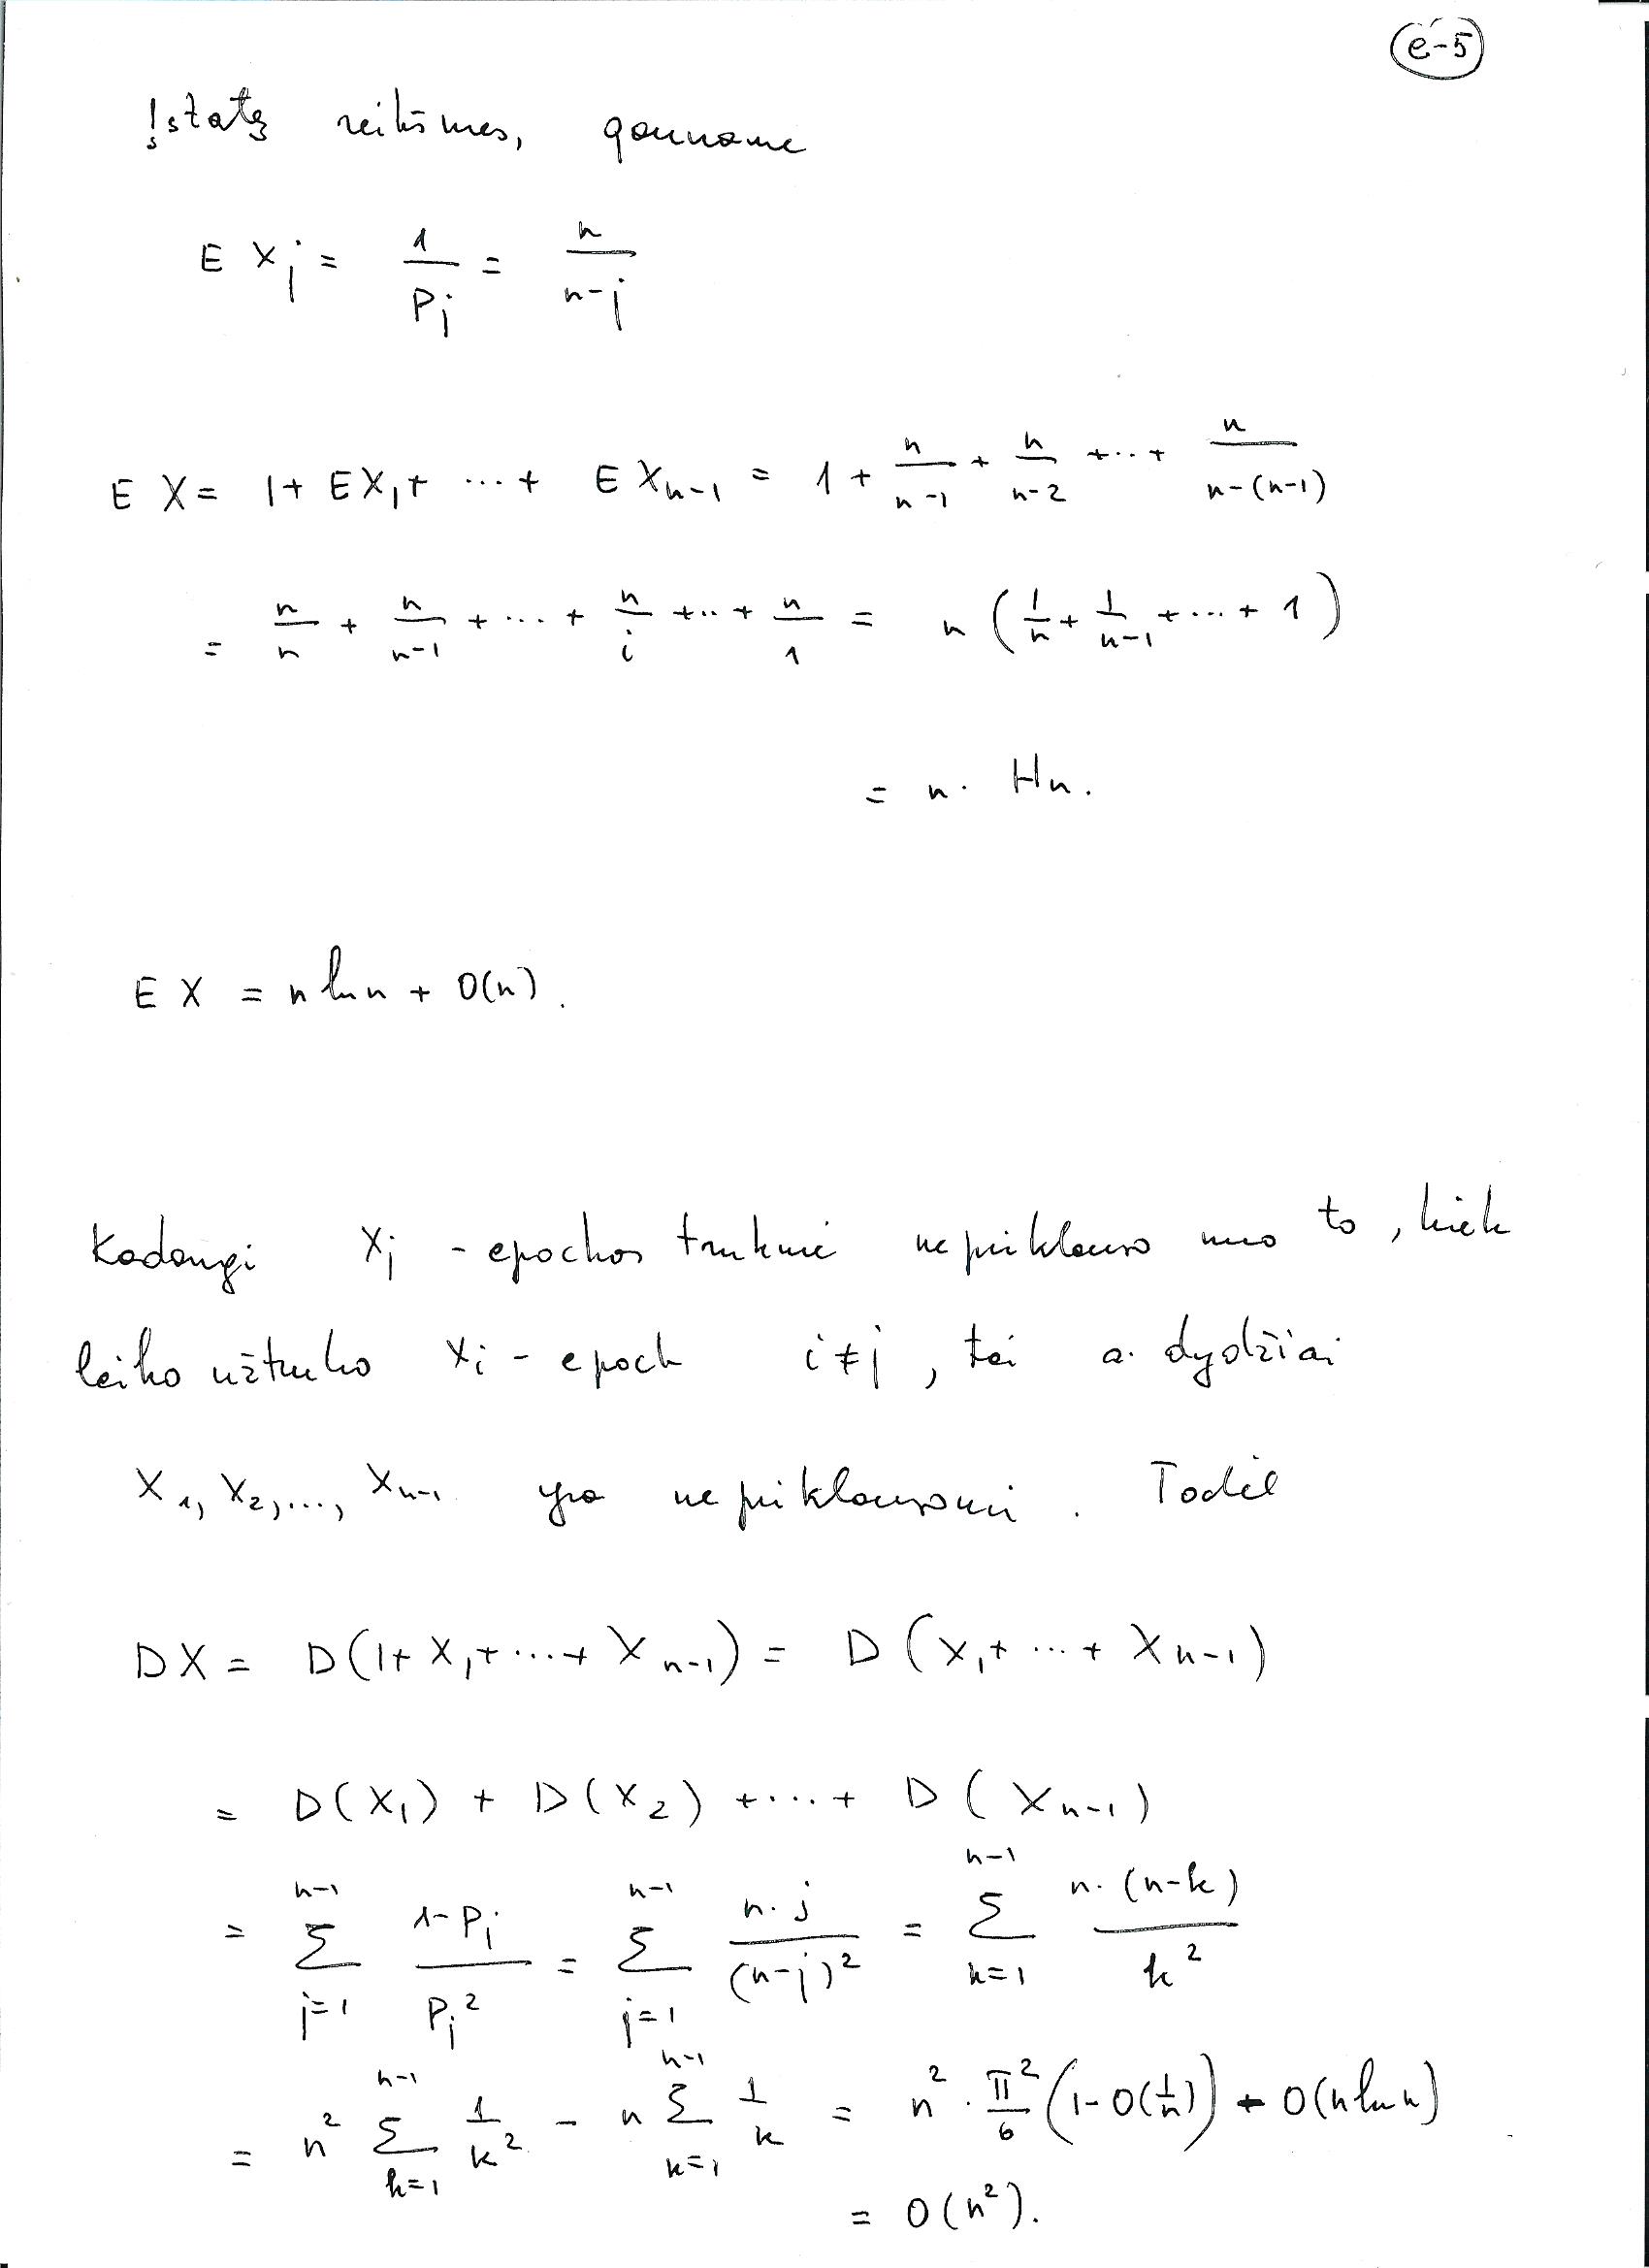 e-5
Įstatę reikšmes, gauname
E Xj = 1/Pj = n/(n-j)
E X = 1 + EX₁ + ... + E Xn-1 = 1 + n/(n-1) + n/(n-2) + ... + n/(n-(n-1))
= n/n + n/(n-1) + ... + n/i + ... + n/1 = n (1/n + 1/(n-1) + ... + 1)
= n · Hn.
E X = n ln n + O(n).
Kadangi Xj - epochos trukmė nepriklauso nuo to, kiek
laiko užtruko Xi - epoch i≠j, tai a. dydžiai
X₁, X₂, ..., Xn-1 yra nepriklausomi. Todėl
DX = D(1 + X₁ + ... + Xn-1) = D (X₁ + ... + Xn-1)
= D(X₁) + D(X₂) + ... + D(Xn-1)
= Σ_{j=1}^{n-1} (1-Pj)/Pj² = Σ_{j=1}^{n-1} n·j/(n-j)² = Σ_{k=1}^{n-1} n·(n-k)/k²
= n² Σ_{k=1}^{n-1} 1/k² - n Σ_{k=1}^{n-1} 1/k = n² · π²/6 (1-O(1/n)) + O(n ln n)
= O(n²).